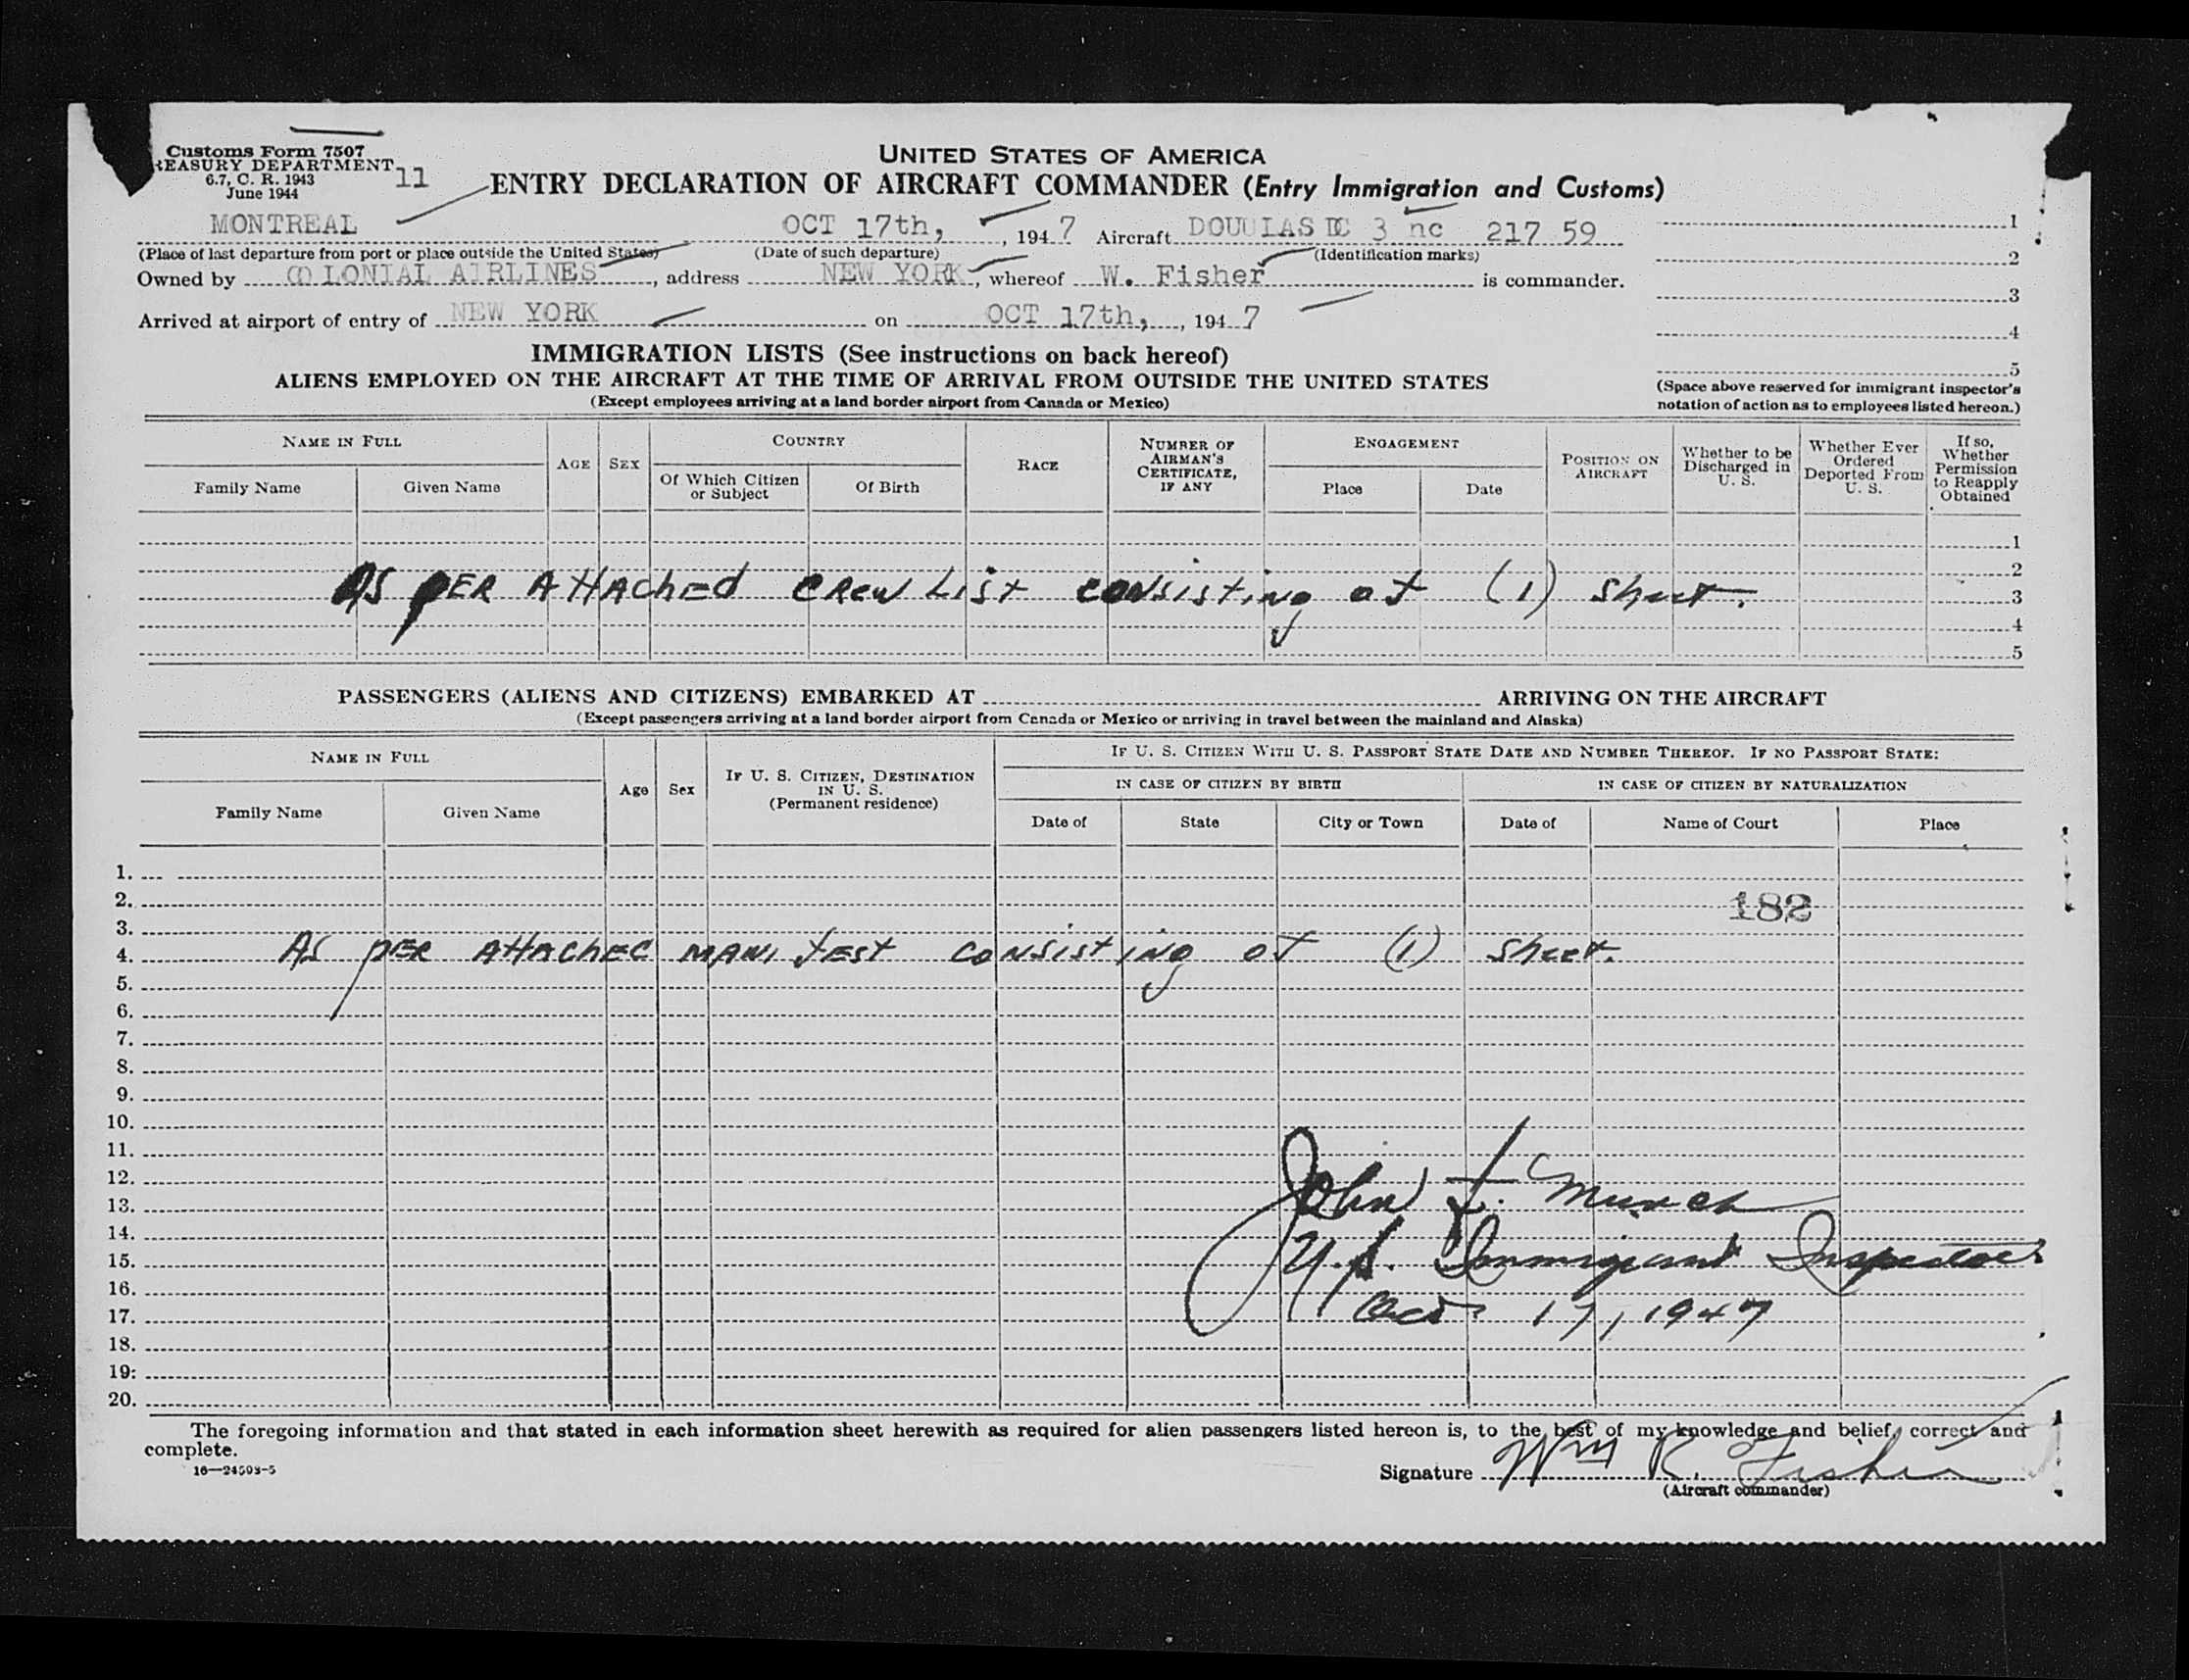 Customs Form 7507
REASURY DEPARTMENT
6.7, C. R. 1943
June 1944
11
UNITED STATES OF AMERICA
ENTRY DECLARATION OF AIRCRAFT COMMANDER (Entry Immigration and Customs)
MONTREAL OCT 17th, , 194 7 Aircraft DOUGLAS DC 3 nc 217 59
(Place of last departure from port or place outside the United States) (Date of such departure) (Identification marks)
Owned by COLONIAL AIRLINES , address NEW YORK , whereof W. Fisher is commander.
Arrived at airport of entry of NEW YORK on OCT 17th, , 194 7
1
2
3
4
5
(Space above reserved for immigrant inspector's
notation of action as to employees listed hereon.)
IMMIGRATION LISTS (See instructions on back hereof)
ALIENS EMPLOYED ON THE AIRCRAFT AT THE TIME OF ARRIVAL FROM OUTSIDE THE UNITED STATES
(Except employees arriving at a land border airport from Canada or Mexico)
NAME IN FULL
Family Name Given Name
AGE
SEX
COUNTRY
Of Which Citizen or Subject
Of Birth
RACE
NUMBER OF AIRMAN'S CERTIFICATE, IF ANY
ENGAGEMENT
Place Date
POSITION ON AIRCRAFT
Whether to be Discharged in U. S.
Whether Ever Ordered Deported From U. S.
If so, Whether Permission to Reapply Obtained
1
2
AS PER AttAChED CREW LiSt CONSiSting of (1) Sheet. 3
4
5
PASSENGERS (ALIENS AND CITIZENS) EMBARKED AT ARRIVING ON THE AIRCRAFT
(Except passengers arriving at a land border airport from Canada or Mexico or arriving in travel between the mainland and Alaska)
NAME IN FULL
Family Name Given Name
Age
Sex
IF U. S. CITIZEN, DESTINATION IN U. S. (Permanent residence)
IF U. S. CITIZEN WITH U. S. PASSPORT STATE DATE AND NUMBER THEREOF. IF NO PASSPORT STATE:
IN CASE OF CITIZEN BY BIRTH IN CASE OF CITIZEN BY NATURALIZATION
Date of State City or Town Date of Name of Court Place
1.
2. 182
3.
4. AS PER AttAChED MANifest CONSiSting of (1) Sheet.
5.
6.
7.
8.
9.
10.
11.
12.
13. John F. Munch
14.
15. U.S. Immigrant Inspector
16.
17. Oct 17, 1947
18.
19.
20.
The foregoing information and that stated in each information sheet herewith as required for alien passengers listed hereon is, to the best of my knowledge and belief, correct and
complete.
16—24503-5
Signature Wm R. Fisher
(Aircraft commander)